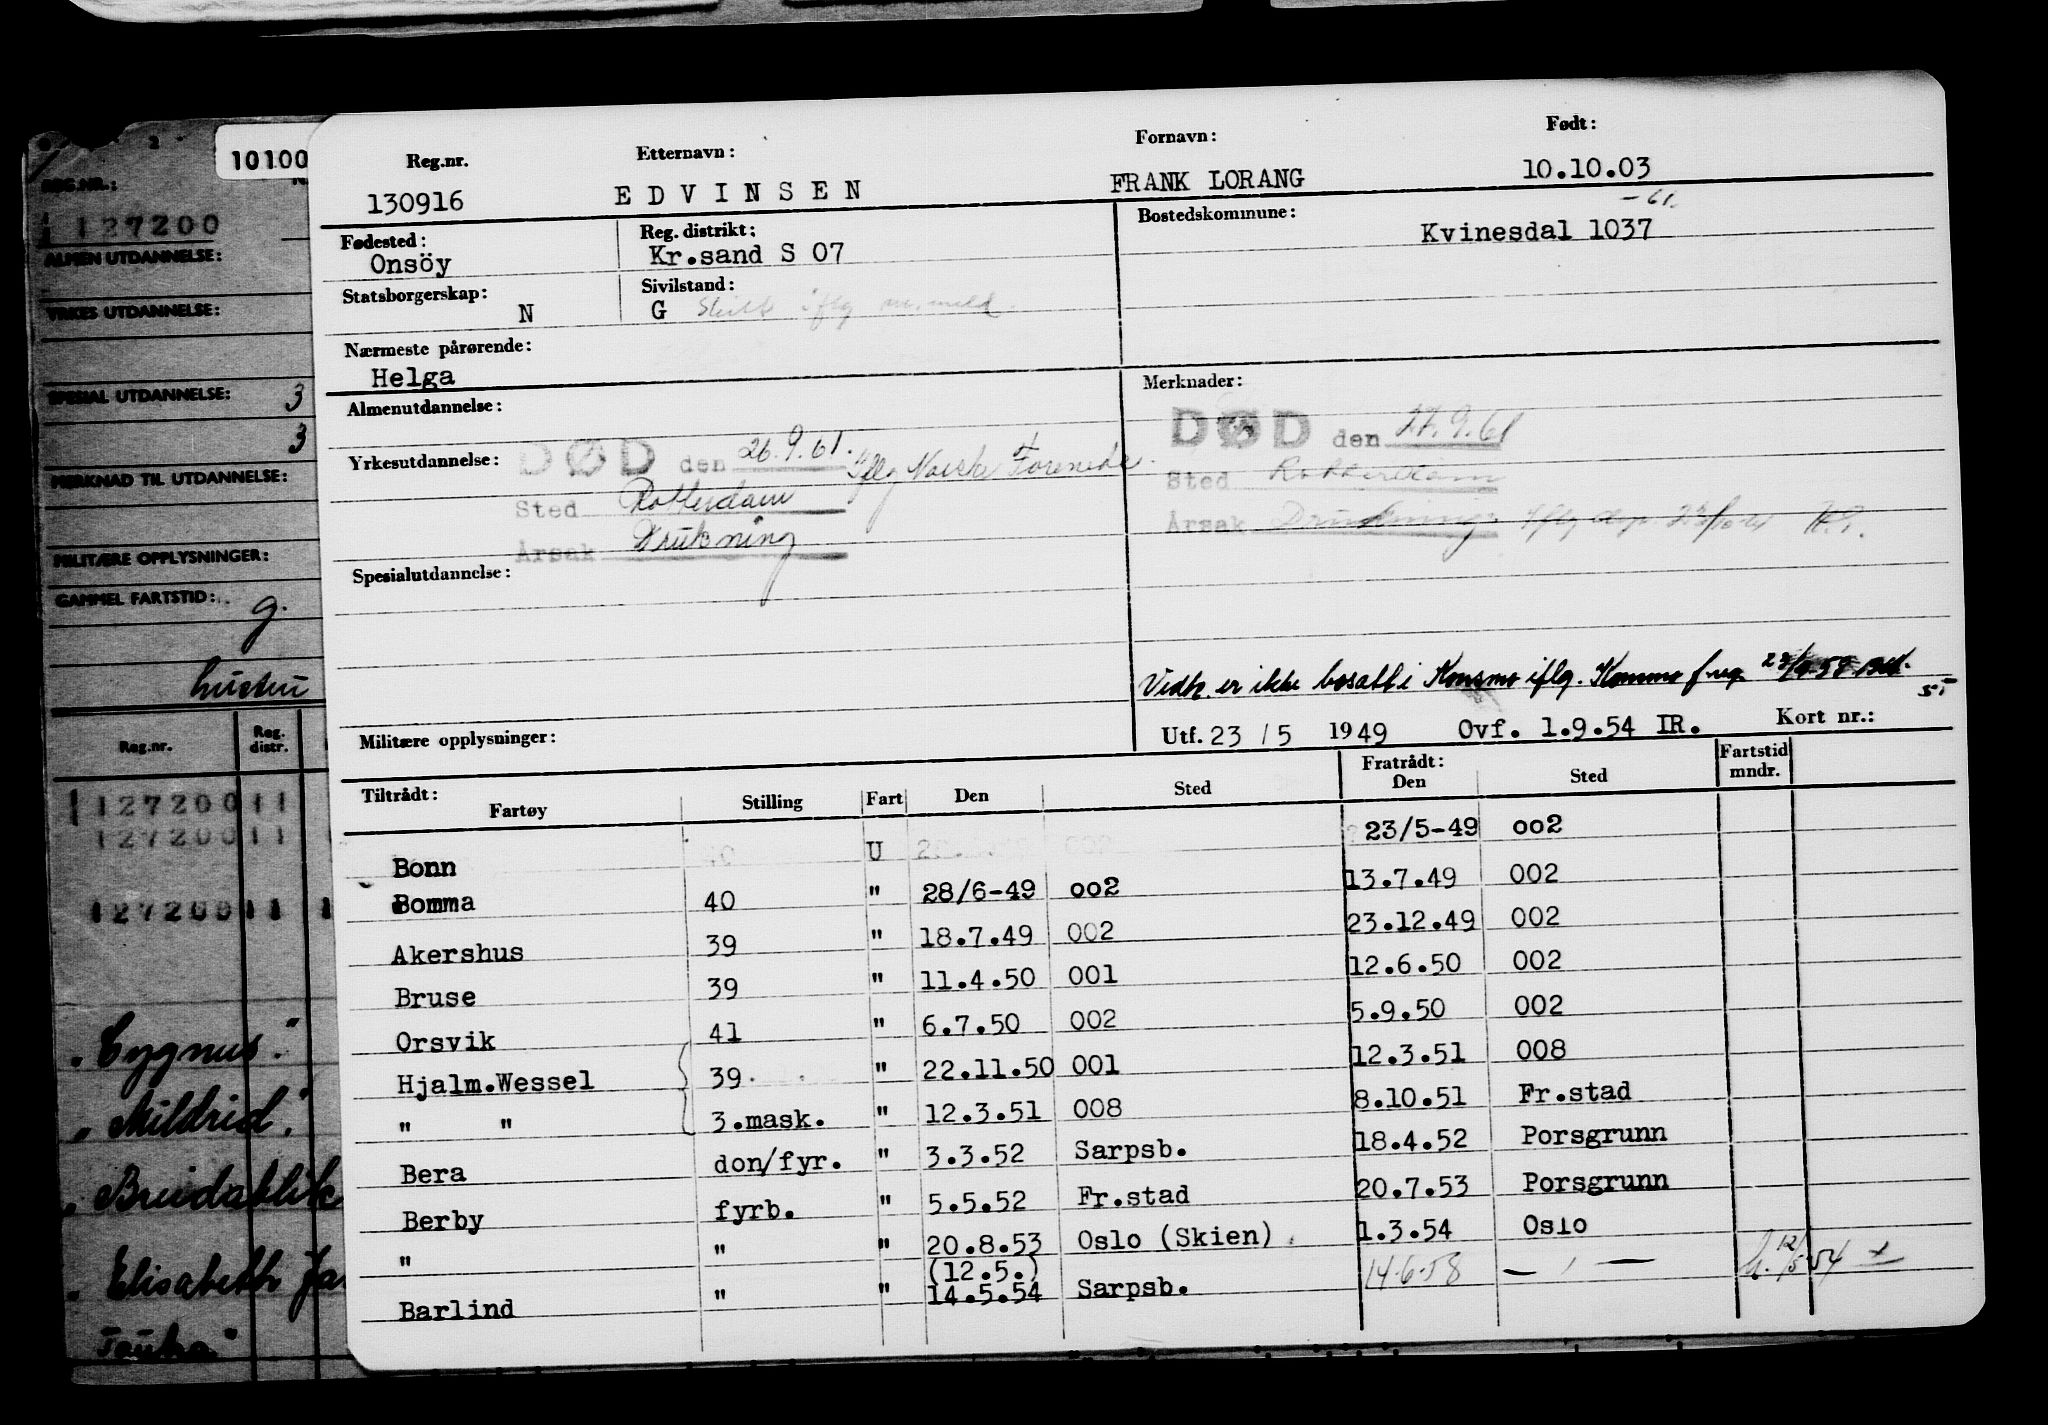 Reg.nr. Etternavn: Fornavn: Født:
130916 EDVINSEN FRANK LORANG 10.10.03
-61.
Fødested: Onsöy
Reg. distrikt: Kr.sand S 07
Bostedskommune: Kvinesdal 1037
Statsborgerskap: N
Sivilstand: G
Nærmeste pårørende:
Helga
Almenutdannelse:
Merknader:
Yrkesutdannelse:
DØD den 26.9.61. Iflg Norske Forenede.
Sted Rotterdam
Årsak Drukning
DØD den 27.9.61
Sted Rotterdam
Årsak Drukning Iflg
Spesialutdannelse:
Vedk. er ikke bosatt i Konsmo iflg.
Militære opplysninger:
Utf. 23 / 5 1949 Ovf. 1.9.54 IR. Kort nr.:
Tiltrådt: Fartøy Stilling Fart Den Sted Fratrådt: Den Sted Fartstid mndr.
Bonn U 002 23/5-49 oo2
Bomma 40 " 28/6-49 oo2 13.7.49 002
Akershus 39 " 18.7.49 002 23.12.49 002
Bruse 39 " 11.4.50 001 12.6.50 002
Orsvik 41 " 6.7.50 002 5.9.50 002
Hjalm.Wessel 39 " 22.11.50 001 12.3.51 008
" " 3.mask. " 12.3.51 008 8.10.51 Fr.stad
Bera don/fyr. " 3.3.52 Sarpsb. 18.4.52 Porsgrunn
Berby fyrb. " 5.5.52 Fr.stad 20.7.53 Porsgrunn
" " " 20.8.53 Oslo (Skien) 1.3.54 Oslo
(12.5.)
Barlind " " 14.5.54 Sarpsb. 14.6.58
10100
REG.NR.:
127200
ALMEN UTDANNELSE:
YRKES UTDANNELSE:
SPESIAL UTDANNELSE: 3
3
MERKNAD TIL UTDANNELSE:
MILITÆRE OPPLYSNINGER:
GAMMEL FARTSTID: g.
hustru
Reg.nr. Reg. distr.
127200 11
127200 11
127200 11 1
"Cygnus".
"Mildrid".
"Breidablik
"Elisabeth